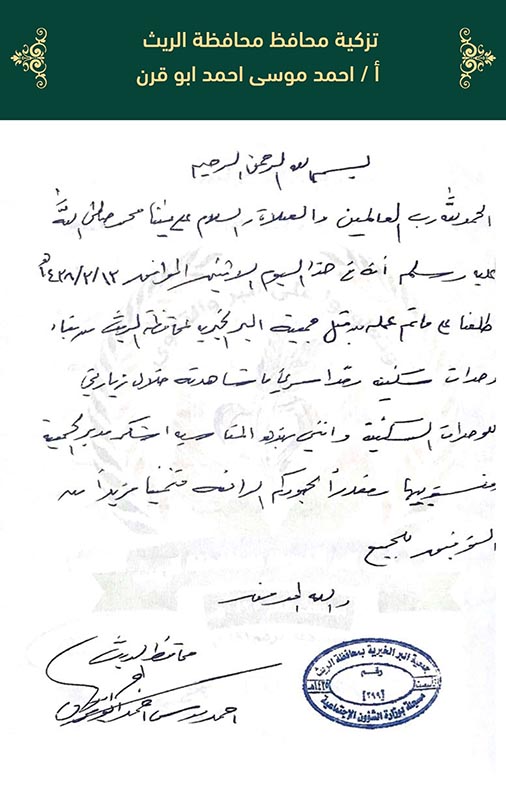 تزكية محافظ محافظة الريث
أ / احمد موسى احمد ابو قرن
بسم الله الرحمن الرحيم
الحمد لله رب العالمين والصلاة والسلام على نبينا محمد صلى الله
عليه وسلم أنه في هذا اليوم الاثنين الموافق ١٤٣٨/٣/١٣هـ
طلعنا على ماتم عمله من قبل جمعية البر الخيرية بمحافظة الريث من بناء
وحدات سكنية وقد سرني ما شاهدته خلال زيارتي
للوحدات السكنية وانني بهذه المناسبة اشكر مدير الجمعية
ومنسوبيها مقدراً لجهودكم الرائعة متمنياً مزيداً من
التوفيق للجميع
والله الموفق
محافظ الريث
احمد موسى احمد ابو قرن
جمعية البر الخيرية بمحافظة الريث
رقم
[٢٩٩]
تأسست ١٤٢٥هـ
مسجلة بوزارة الشؤون الإجتماعية